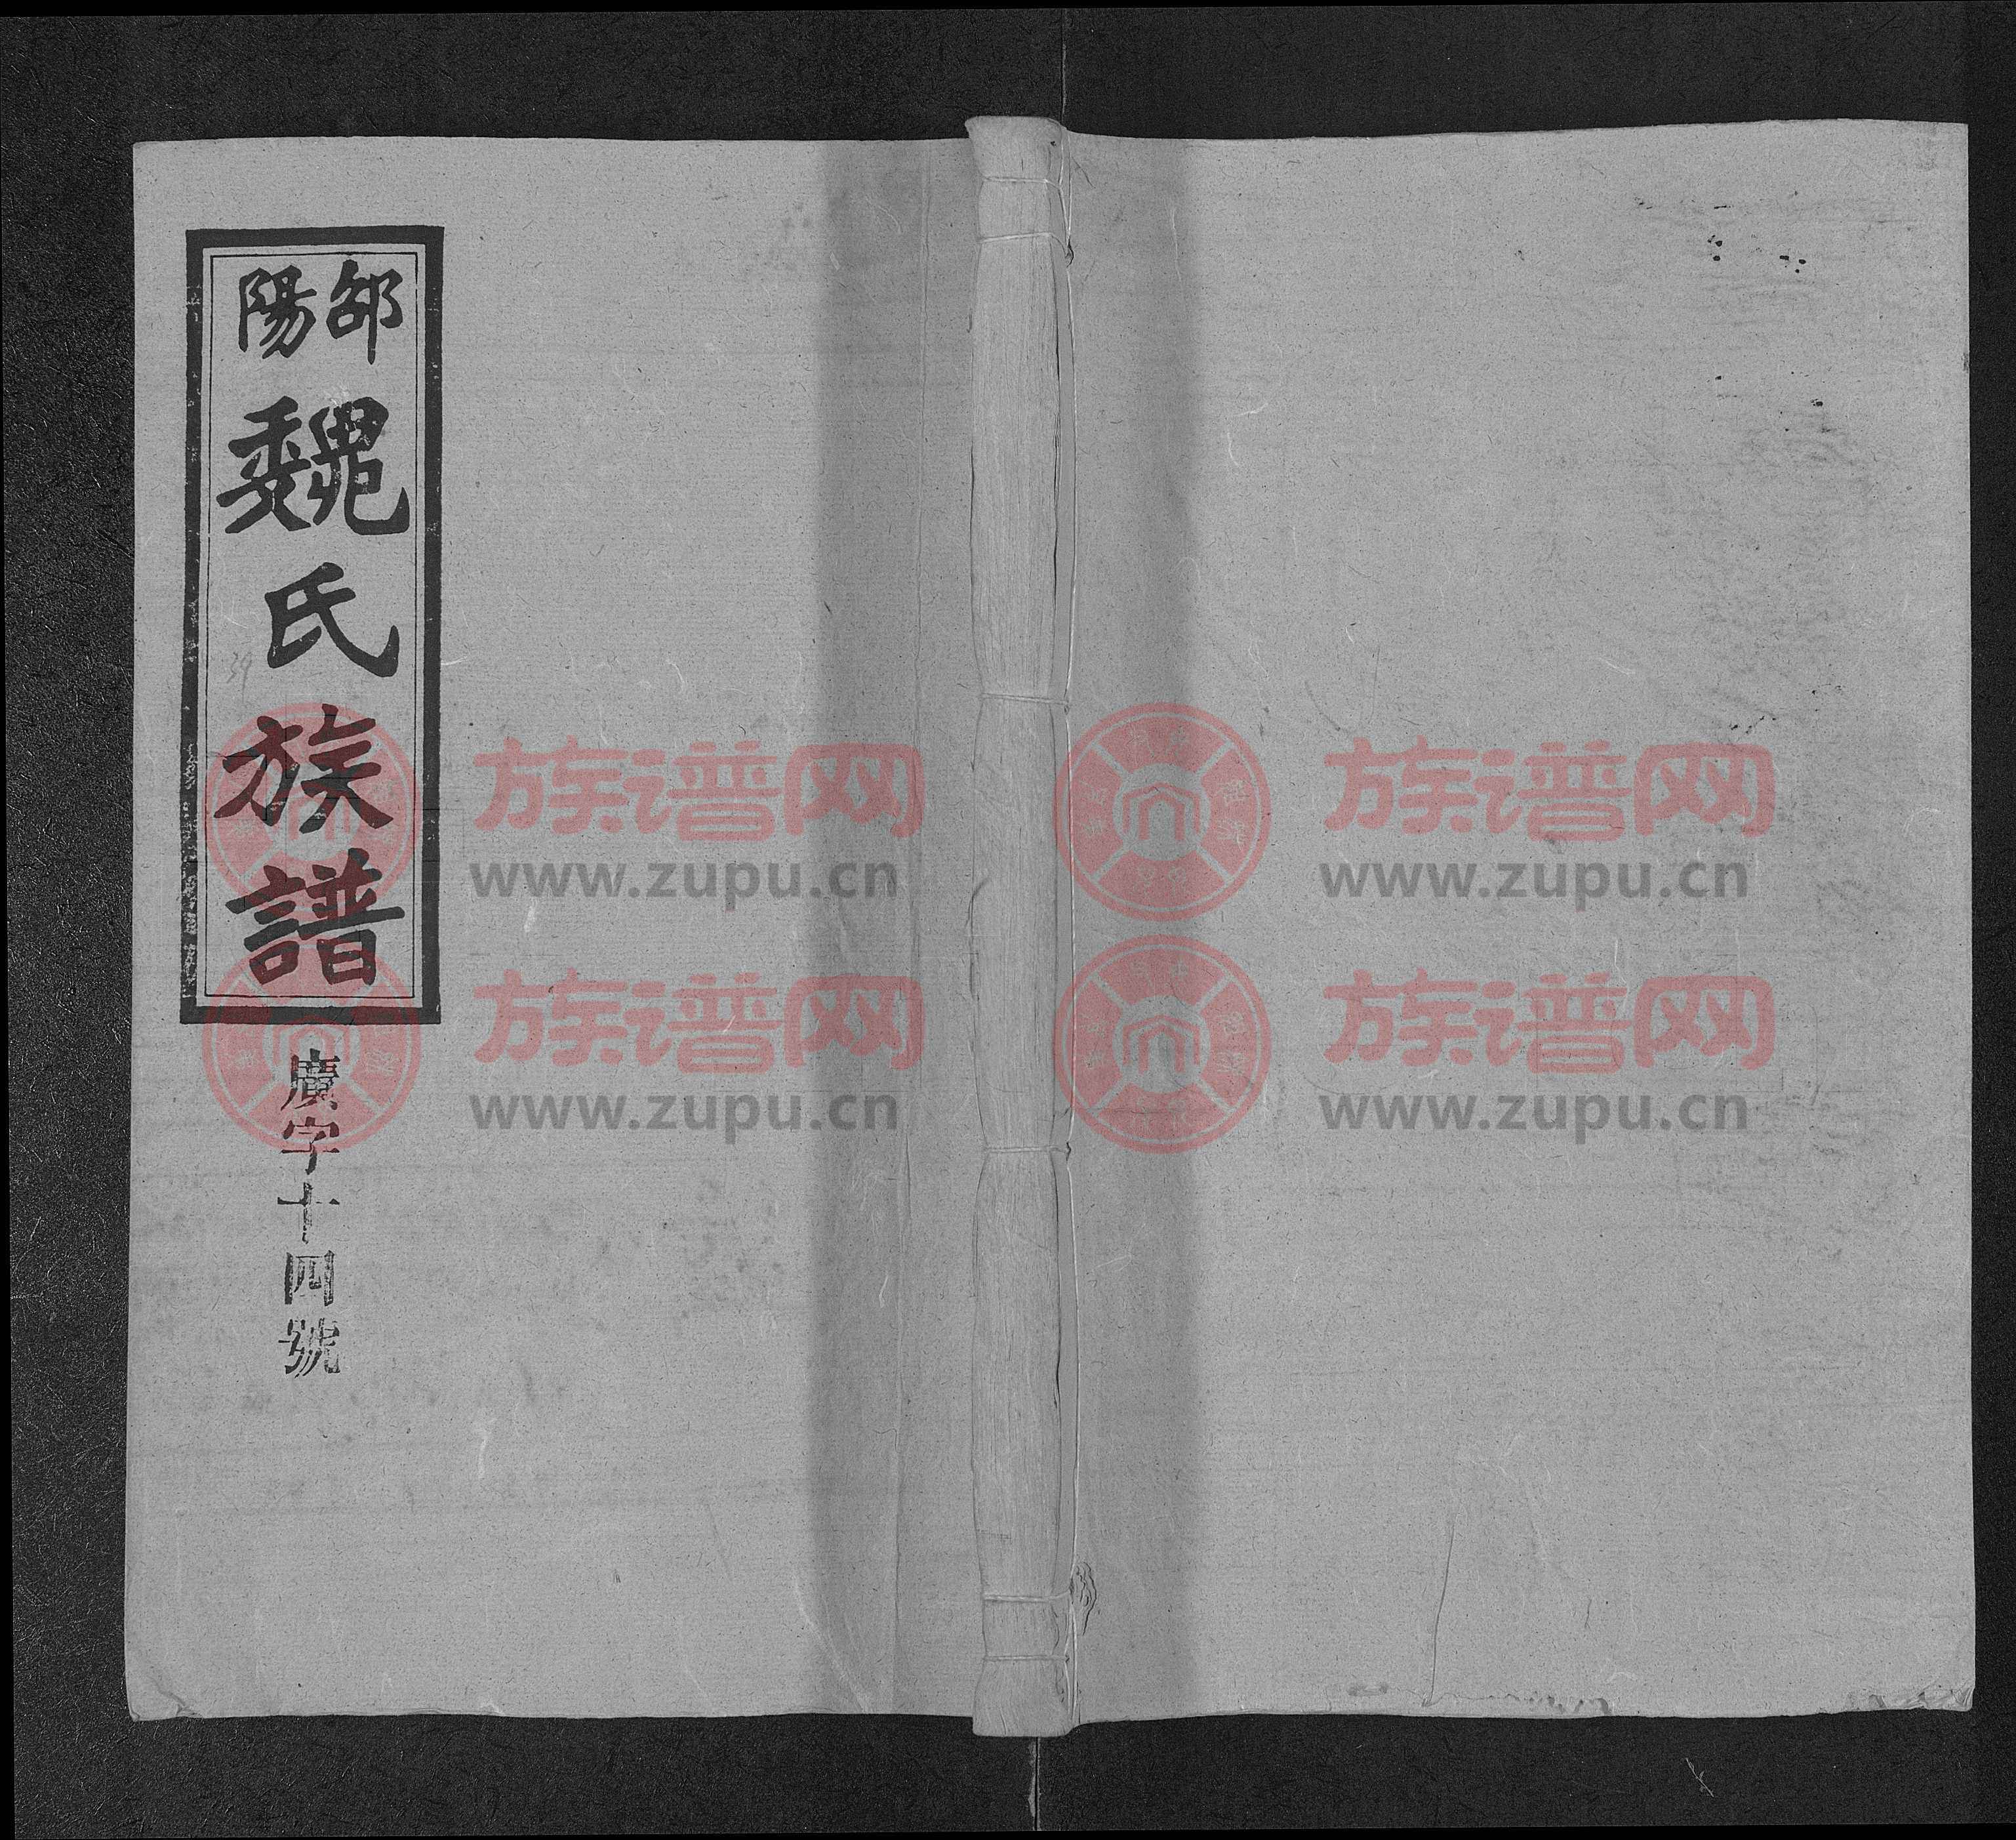 邵陽
魏氏族譜
廣字十四號
39
族谱网
www.zupu.cn
族谱网
www.zupu.cn
族谱网
www.zupu.cn
族谱网
www.zupu.cn